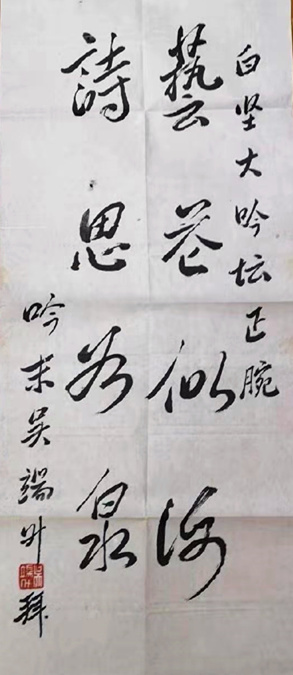 白坚大吟坛正腕
藝似海
詩思若泉
吟末吴端升拜